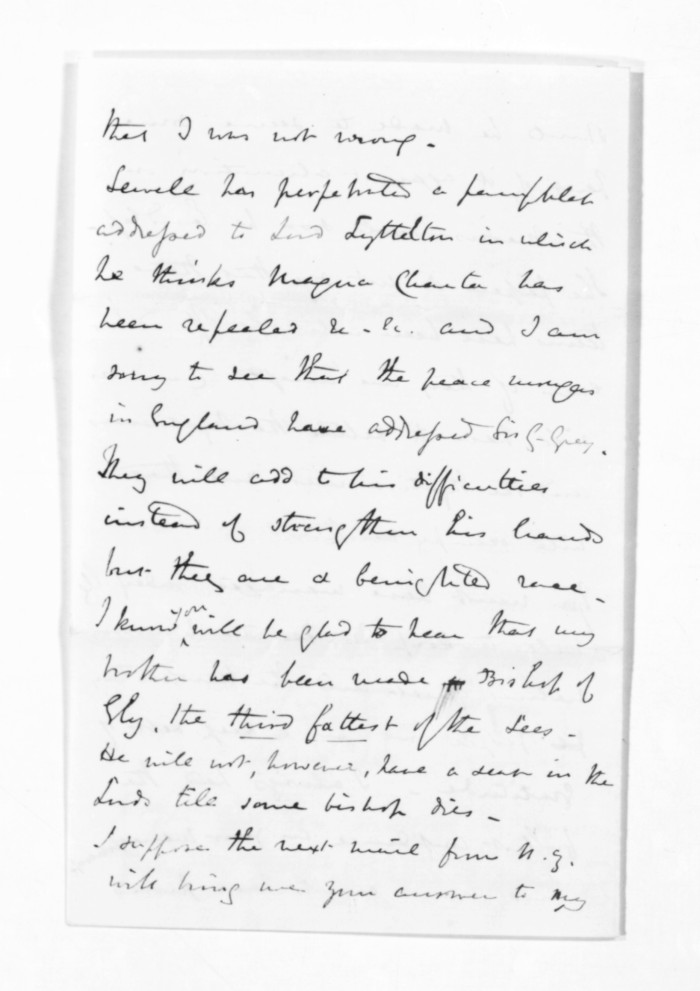 that I was not wrong -
Sewell has perpetrated a pamphlet
addressed to Lord Lyttelton in which
he thinks Magna Charta has
been repealed &c - &c. and I am
sorry to see that the peace mongers
in England have addressed Sir G- Grey.
They will add to his difficulties
instead of strengthen his hands
but they are a benighted race -
I know you will be glad to hear that my
brother has been made Bishop of
Ely, the third fattest of the Sees -
He will not, however, have a seat in the
Lords till some bishop dies -
I suppose the next mail from N.Z.
will bring me your answer to my